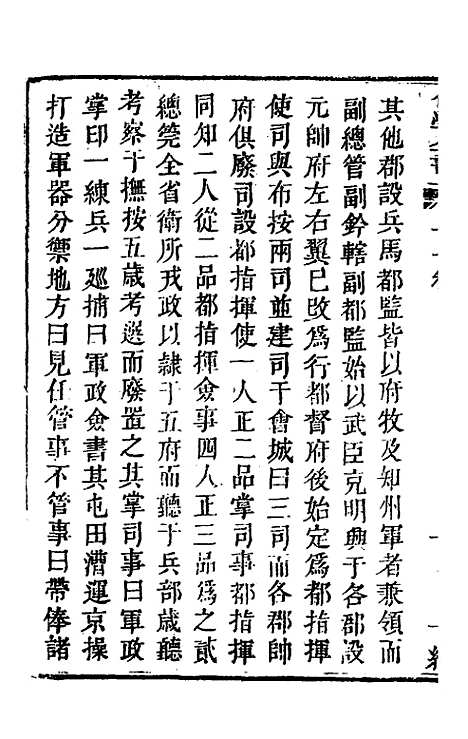 其他郡設兵馬都監皆以府牧及知州軍者兼領而
副總管副鈐轄副都監始以武臣充明興于各郡設
元帥府左右翼已改爲行都督府後始定爲都指揮
使司與布按兩司並建司于會城曰三司而各郡帥
府俱廢司設都指揮使一人正二品掌司事都指揮
同知二人從二品都指揮僉事四人正三品爲之貳
總筦全省衛所戎政以隸于五府而聽于兵部歲聽
考察于撫按五歲考選而廢置之其掌司事曰軍政
掌印一練兵一廵捕曰軍政僉書其屯田漕運京操
打造軍器分禦地方曰見任管事不管事曰帶俸諸